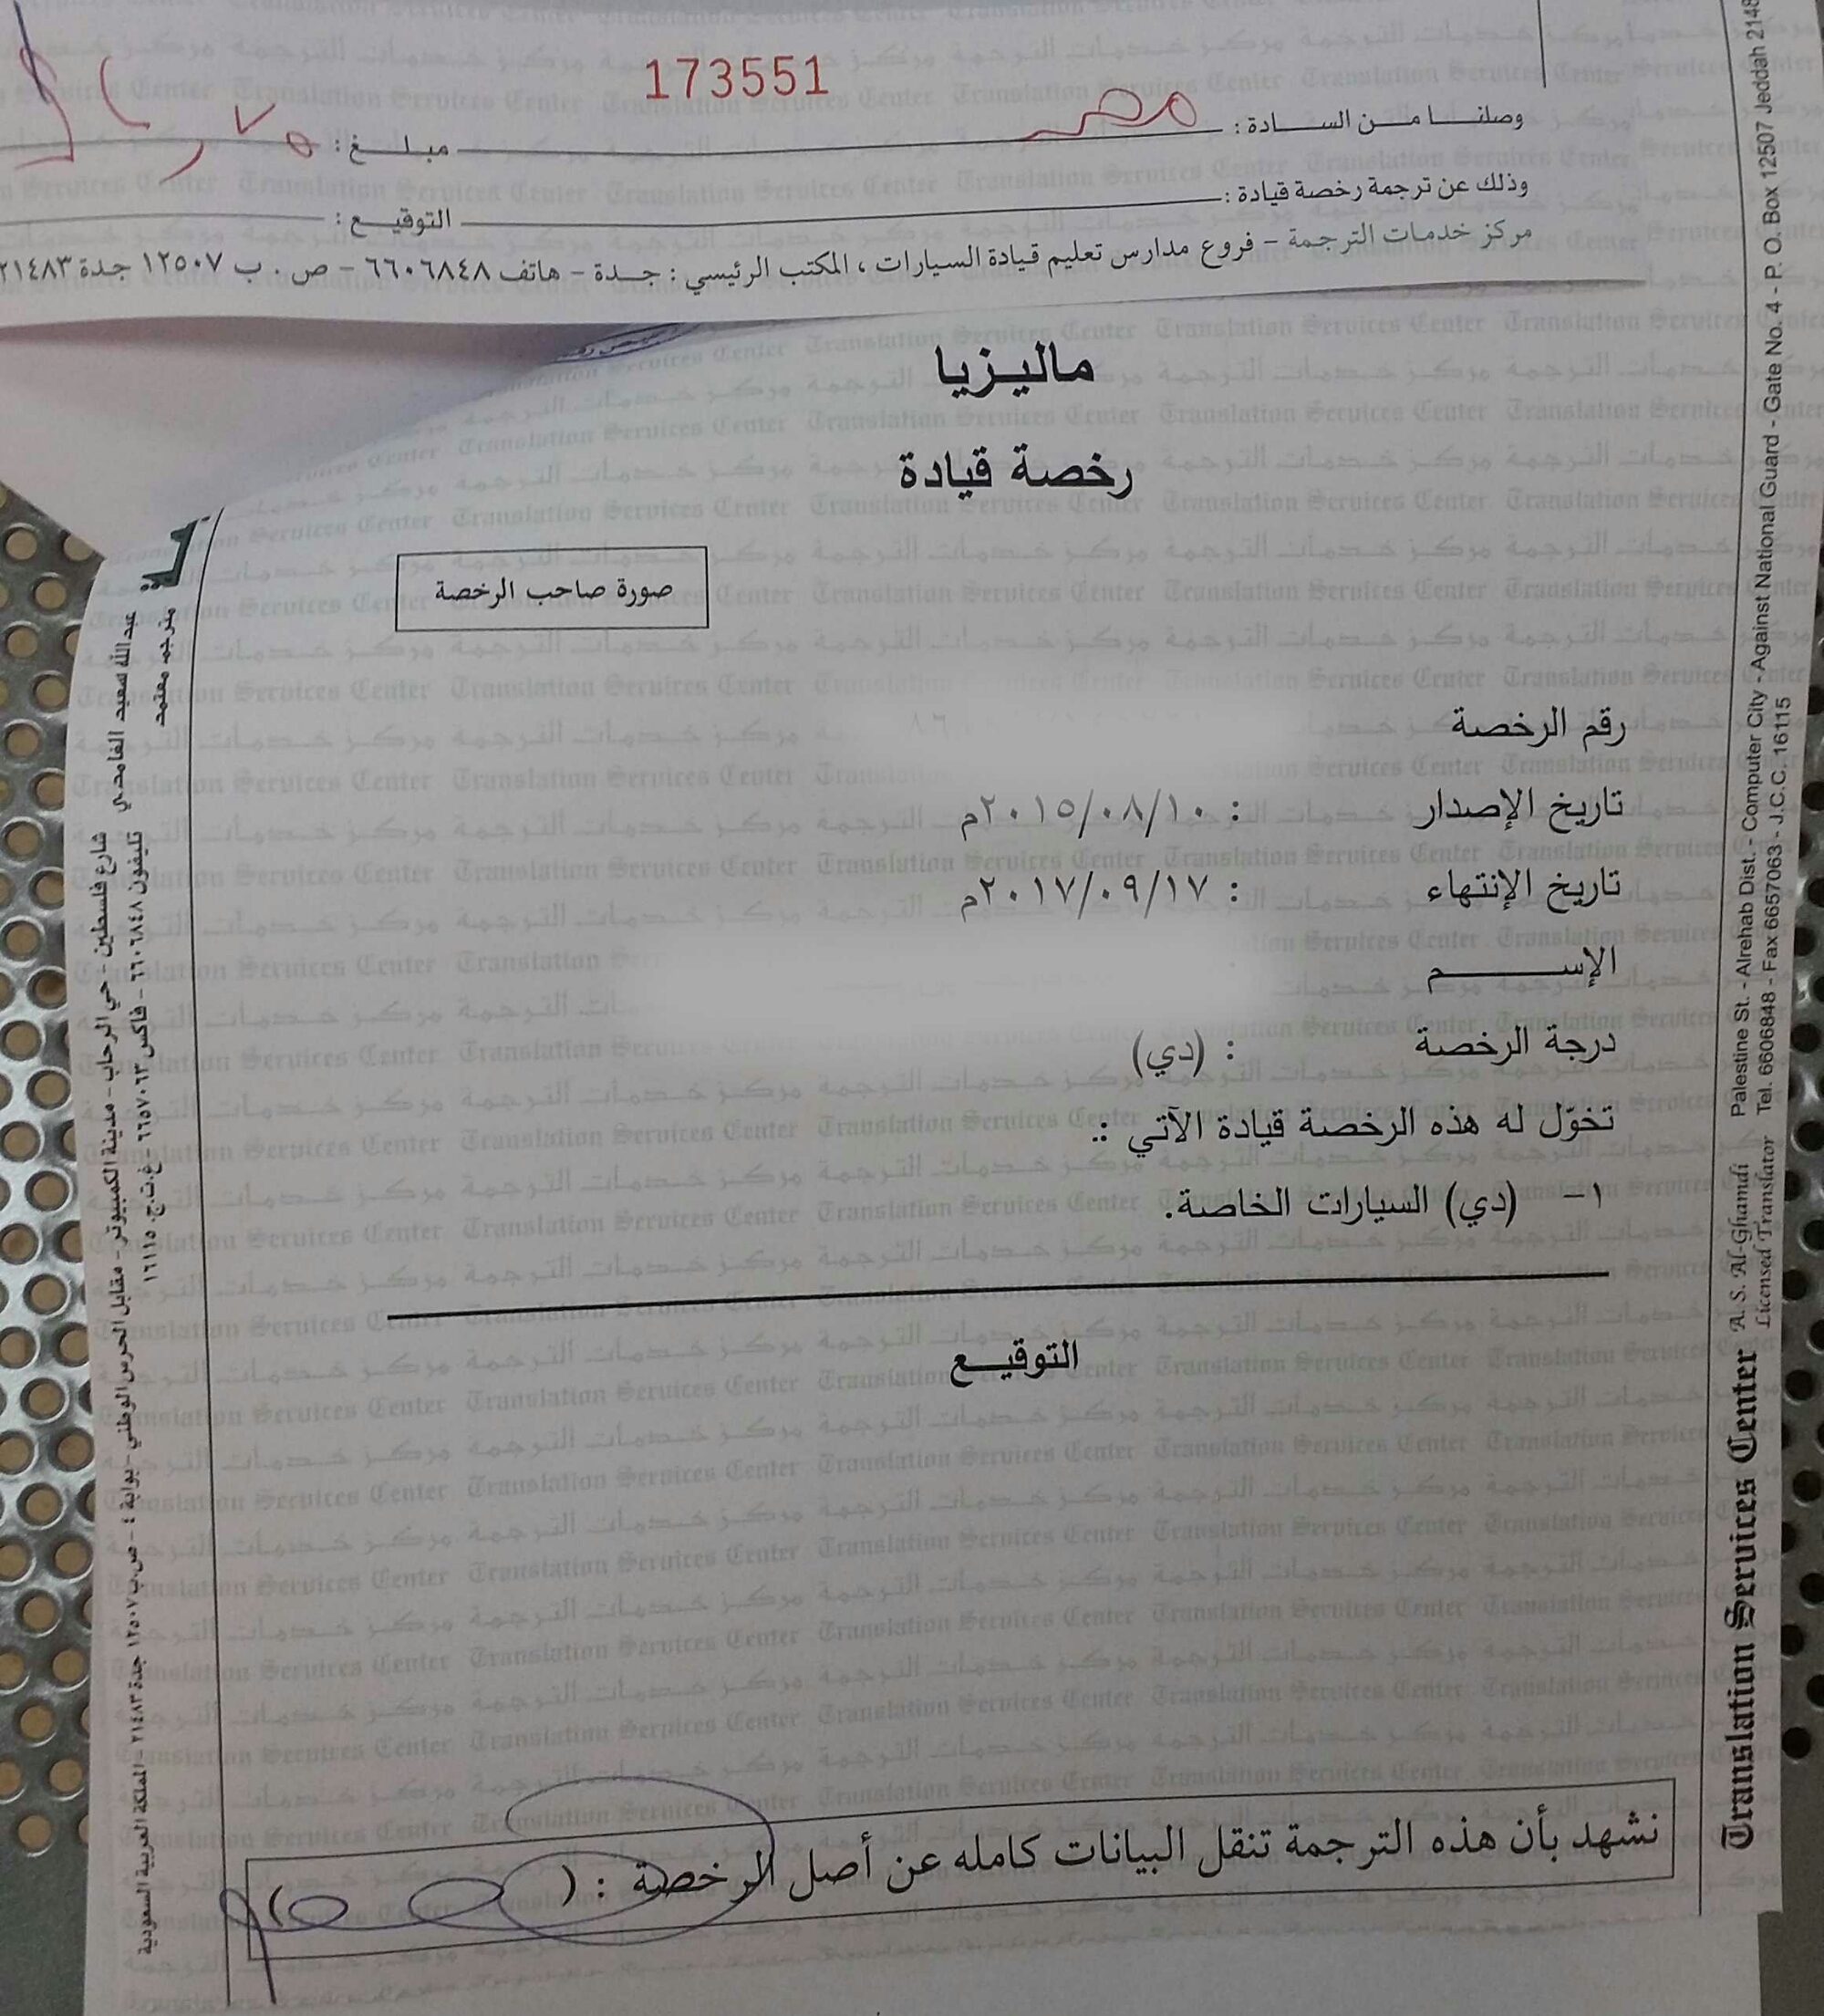 173551
وصلنا من السادة :
مبلغ :
وذلك عن ترجمة رخصة قيادة :
التوقيع :
مركز خدمات الترجمة - فروع مدارس تعليم قيادة السيارات ، المكتب الرئيسي : جدة - هاتف ٦٦٠٦٨٤٨ - ص . ب ١٢٥٠٧ جدة ٢١٤٨٣
ماليزيا
رخصة قيادة
صورة صاحب الرخصة
رقم الرخصة
تاريخ الإصدار : ٢٠١٥/٠٨/١٠م
تاريخ الإنتهاء : ٢٠١٧/٠٩/١٧م
الإسم
درجة الرخصة : (دي)
تخوّل له هذه الرخصة قيادة الآتي :.
١- (دي) السيارات الخاصة.
التوقيع
نشهد بأن هذه الترجمة تنقل البيانات كامله عن أصل الرخصة : ( )
Translation Services Center
A. S. Al-Ghamdi
Licensed Translator
Palestine St. - Alrehab Dist. - Computer City - Against National Guard - Gate No. 4 - P. O. Box 12507 Jeddah 2148
Tel. 6606848 - Fax 6657063 - J.C.C. 16115
عبدالله سعيد الغامدي
مترجم معتمد
شارع فلسطين - حي الرحاب - مدينة الكمبيوتر - مقابل الحرس الوطني - بوابة ٤ - ص.ب ١٢٥٠٧ جدة ٢١٤٨٣ - المملكة العربية السعودية
تليفون ٦٦٠٦٨٤٨ - فاكس ٦٦٥٧٠٦٣ - غ.ت.ج. ١٦١١٥